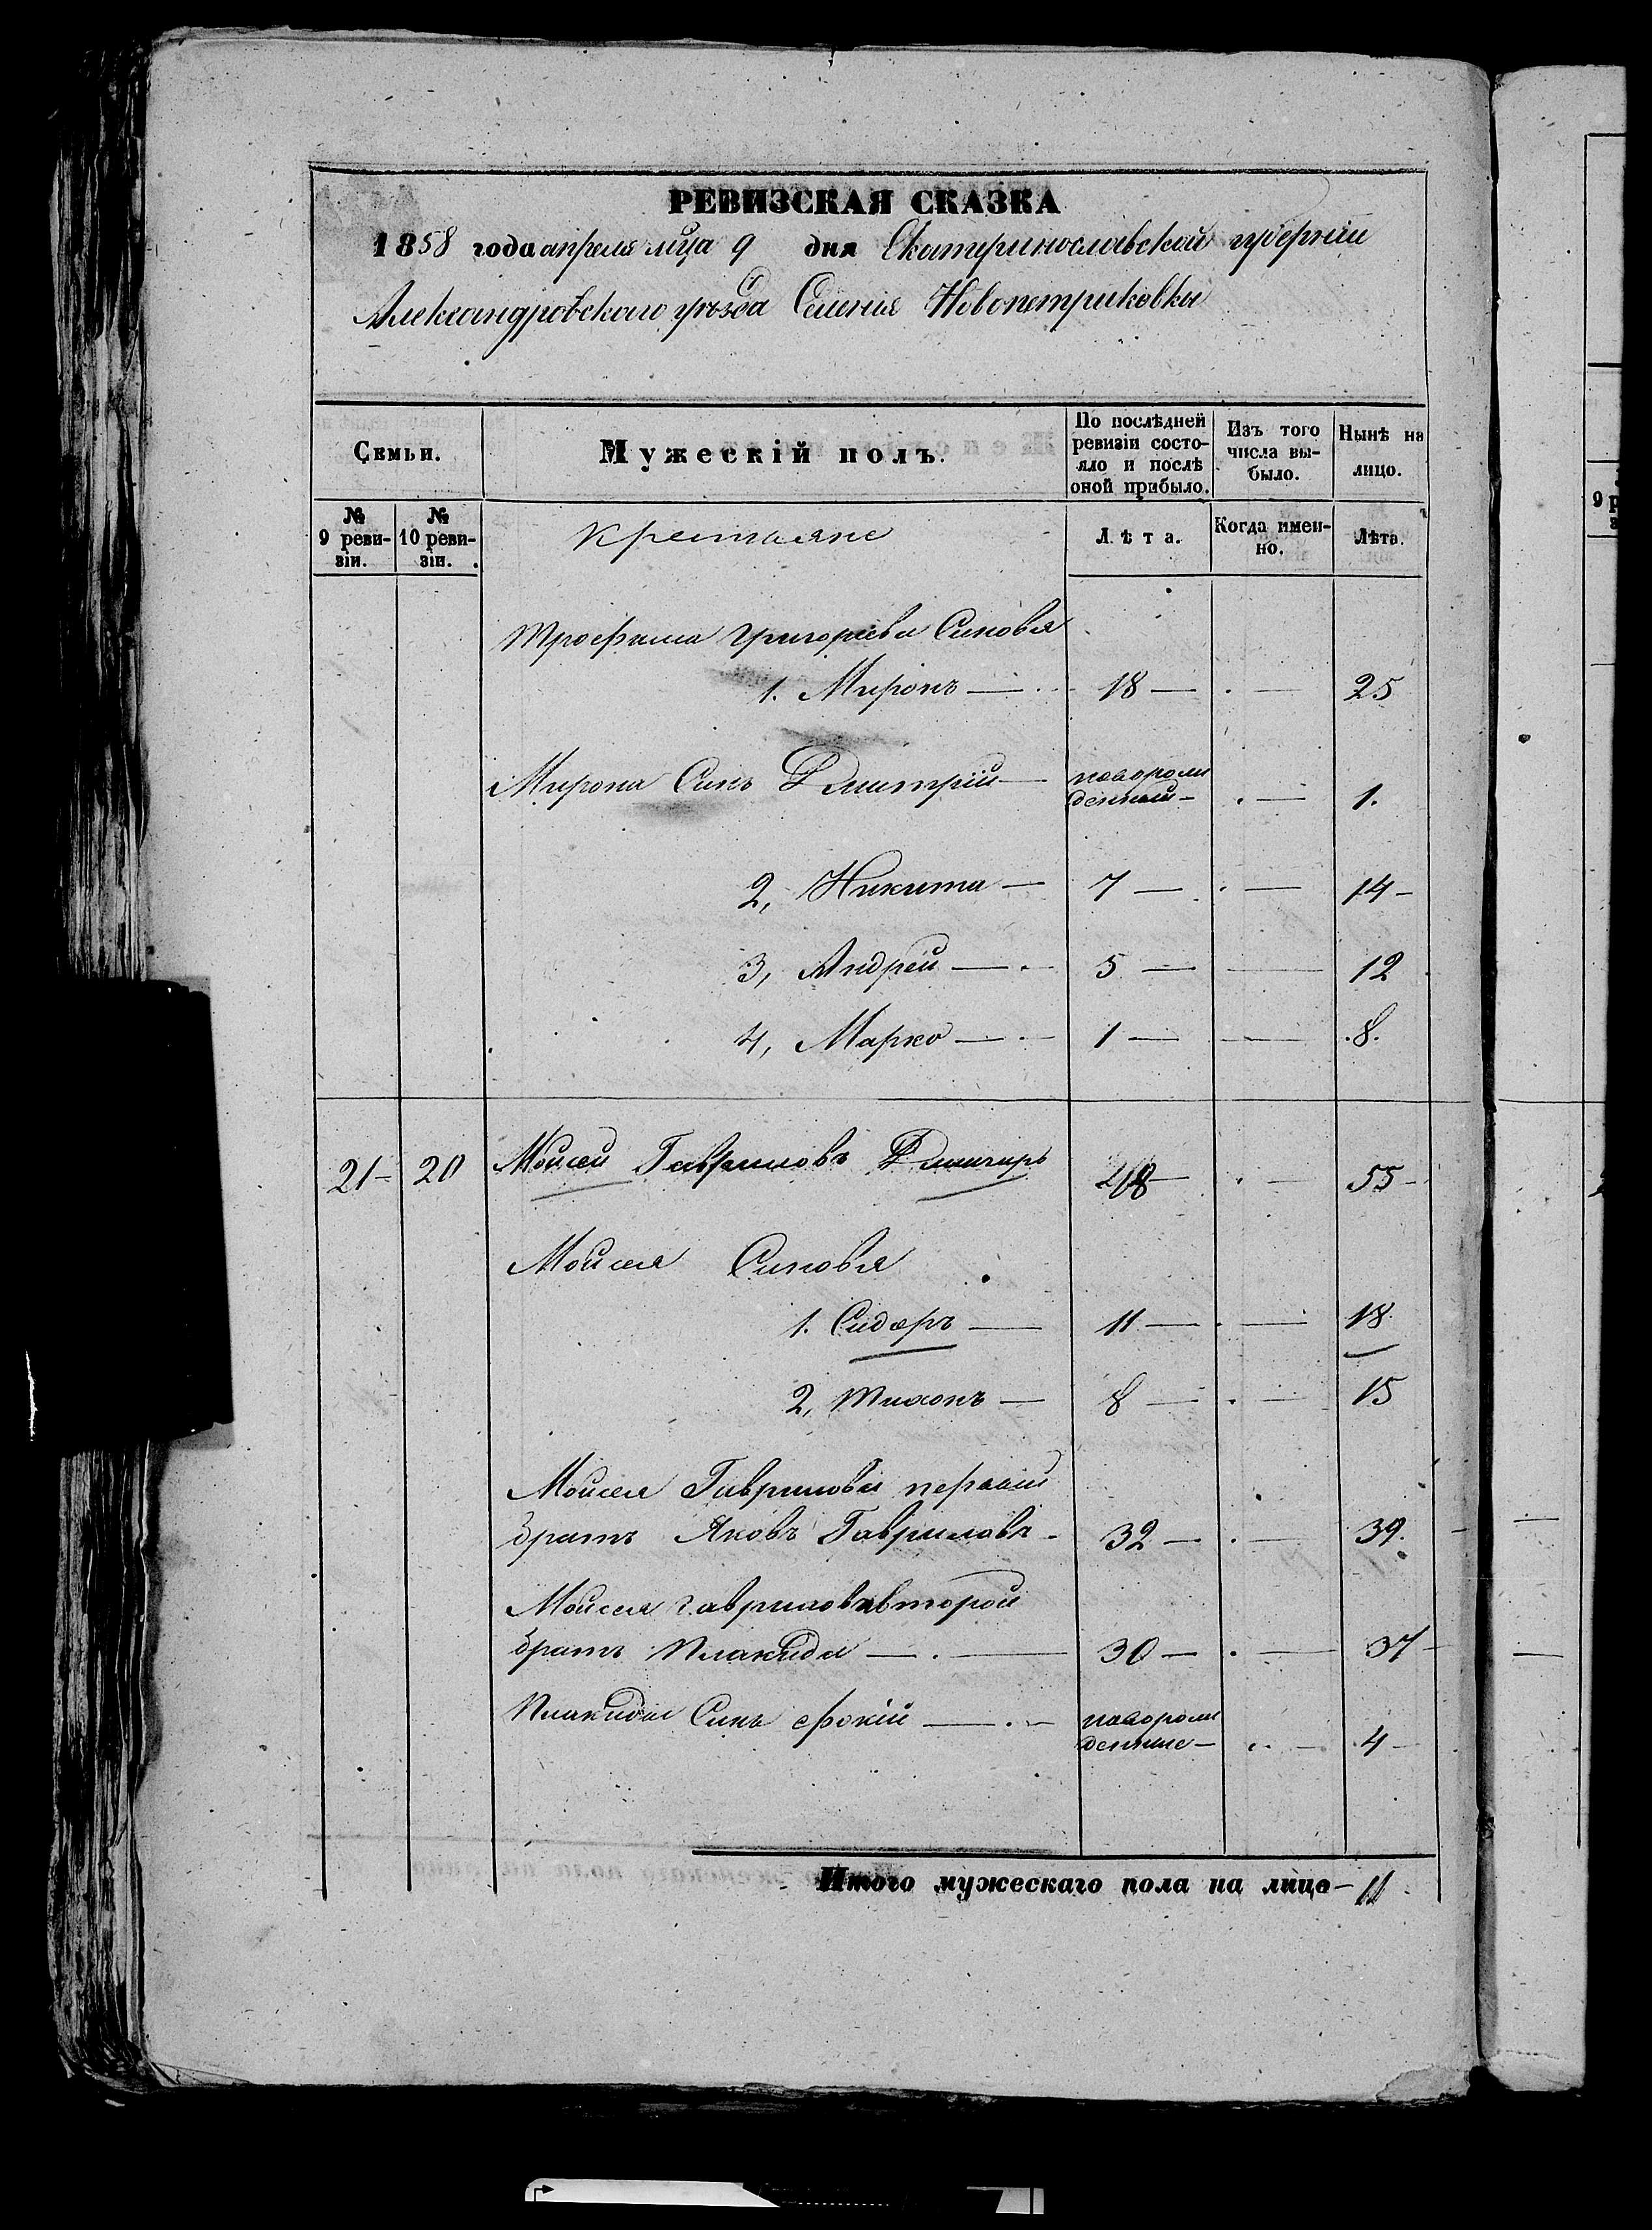 РЕВИЗСКАЯ СКАЗКА
1858 года апреля мца 9 дня Екатеринославской губерніи
Александровского уѣзда Селенія Новопетриковки
Семьи.
Мужескій полъ.
По послѣдней ревизіи состояло и послѣ оной прибыло.
Изъ того числа выбыло.
Нынѣ на лицо.
№ 9 ревизіи.
№ 10 ревизіи.
крестьяне
Лѣта.
Когда имен-
но.
Лѣта.
Трофима Григориева Синовья
1. Миронъ — 18 — . — 25
Мирона Синъ Дмитрій — новорож
денный — . — 1.
2, Никита — 7 — . — 14 —
3, Андрей — . — 5 — — 12
4, Марко — . — 1 — — .8.
21 — 20 Мойсей Гавриловъ 48 — . — 55 —
Мойсея Синовья
1. Сидоръ — 11 — . — 18.
2, Тихонъ — 8 — . — 15
Мойсея Гаврилова первий
братъ Яковъ Гавриловъ — 32 — . — 39.
Мойсея Гаврилова второй
братъ Плакида — . — 30 — . — 37 —
Плакиды Синъ — . — новорож
денные — . . — 4 —
Итого мужескаго пола на лицо — 11.
9 р